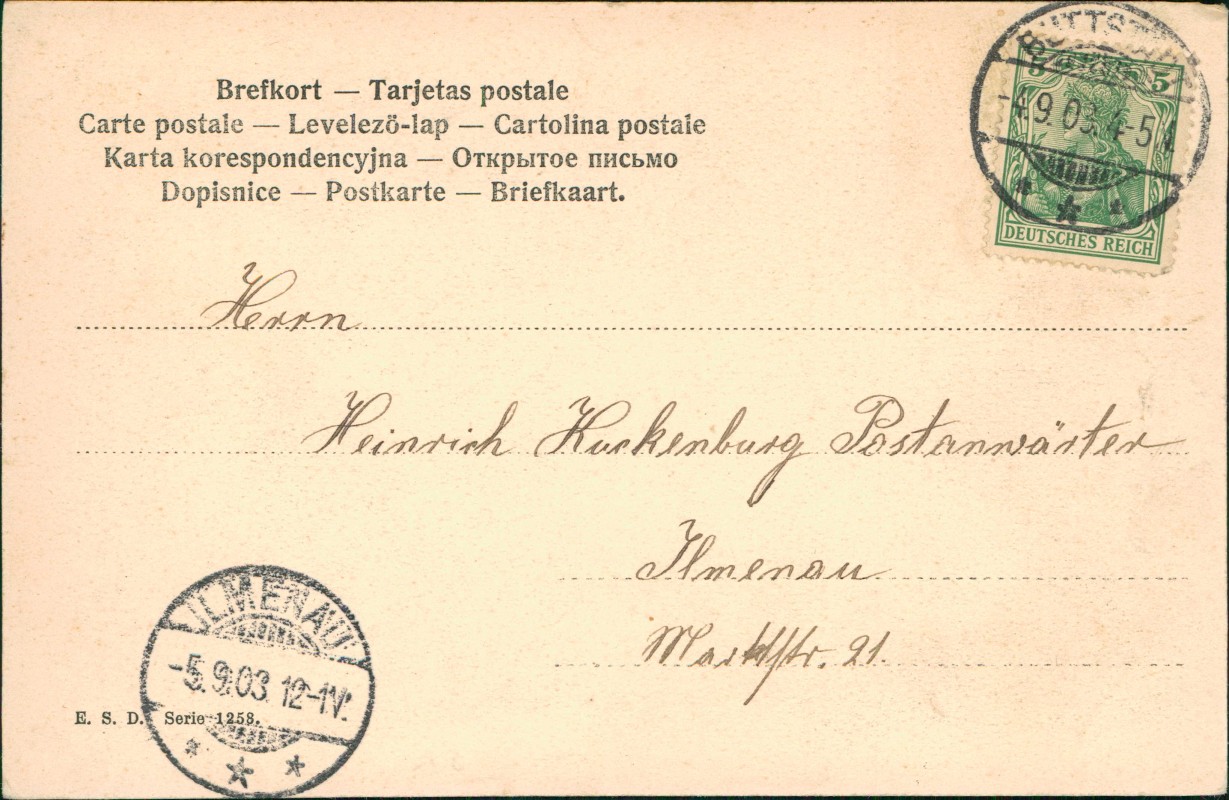 Brefkort — Tarjetas postale
Carte postale — Levelező-lap — Cartolina postale
Karta korespondencyjna — Открытое письмо
Dopisnice — Postkarte — Briefkaart.
5 5
-4.9.03. 4-5
DEUTSCHES REICH
Herrn
Heinrich Kuckenburg Postanwärter
Ilmenau
Marktstr. 21.
ILMENAU
-5.9.03. 12-1V.
E. S. D. Serie 1258.